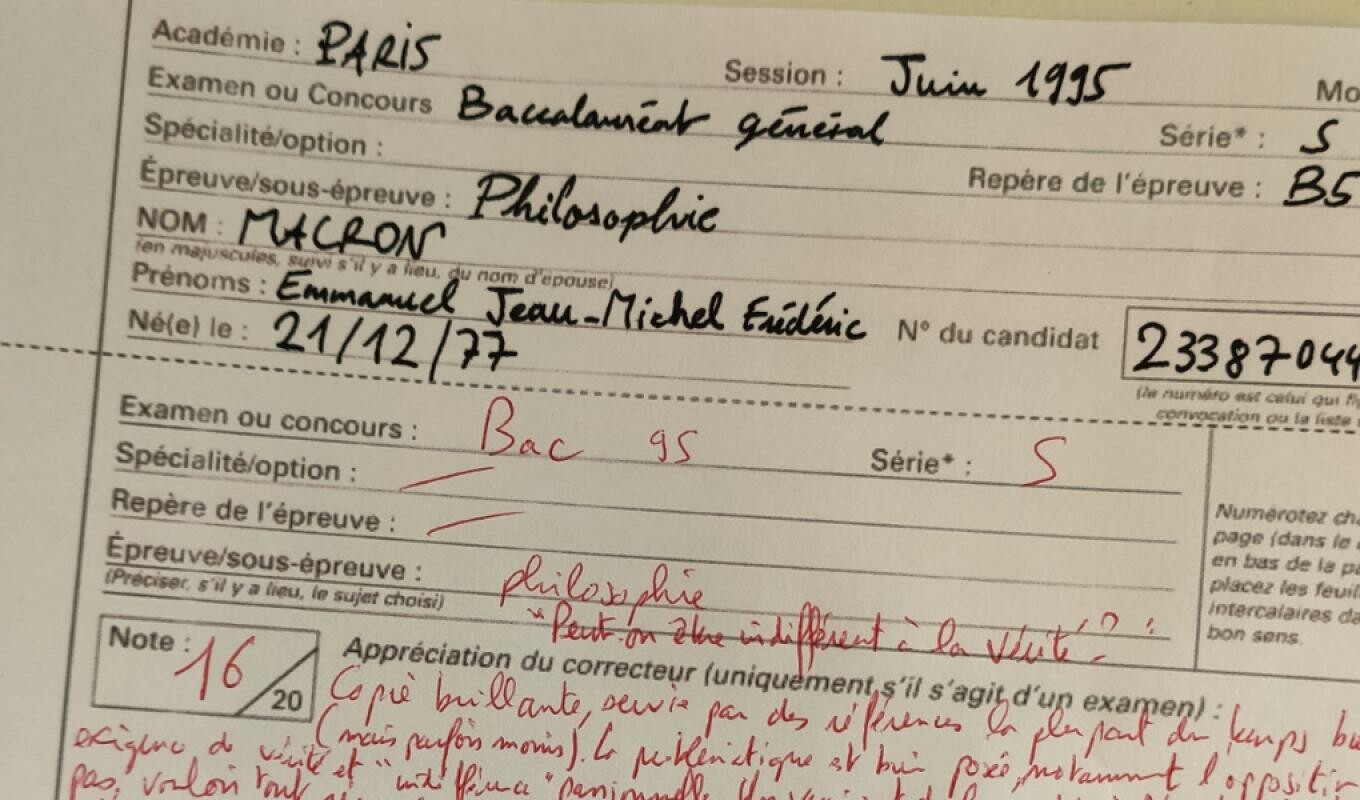 Académie : PARIS Session : Juin 1995 Mo
Examen ou Concours Baccalauréat général Série* : S
Spécialité/option : Repère de l'épreuve : B5
Épreuve/sous-épreuve : Philosophie
NOM : MACRON
(en majuscules, suivi s'il y a lieu, du nom d'épouse)
Prénoms : Emmanuel Jean-Michel Frédéric N° du candidat 23387044
Né(e) le : 21/12/77
(le numéro est celui qui fi
convocation ou la liste
Examen ou concours : Bac 95 Série* : S
Spécialité/option : —
Repère de l'épreuve : —
Épreuve/sous-épreuve : philosophie
(Préciser, s'il y a lieu, le sujet choisi) "Peut-on être indifférent à la vérité" ? :
Numérotez cha
page (dans le
en bas de la pa
placez les feuil
intercalaires da
bon sens.
Note : 16/20
Appréciation du correcteur (uniquement s'il s'agit d'un examen) :
Copie brillante, servie par des références la plupart du temps bi
(mais parfois moins). La problématique est bien posée, notamment l'oppositi
exigence de vérité et "indifférence"
pas, vouloir tout